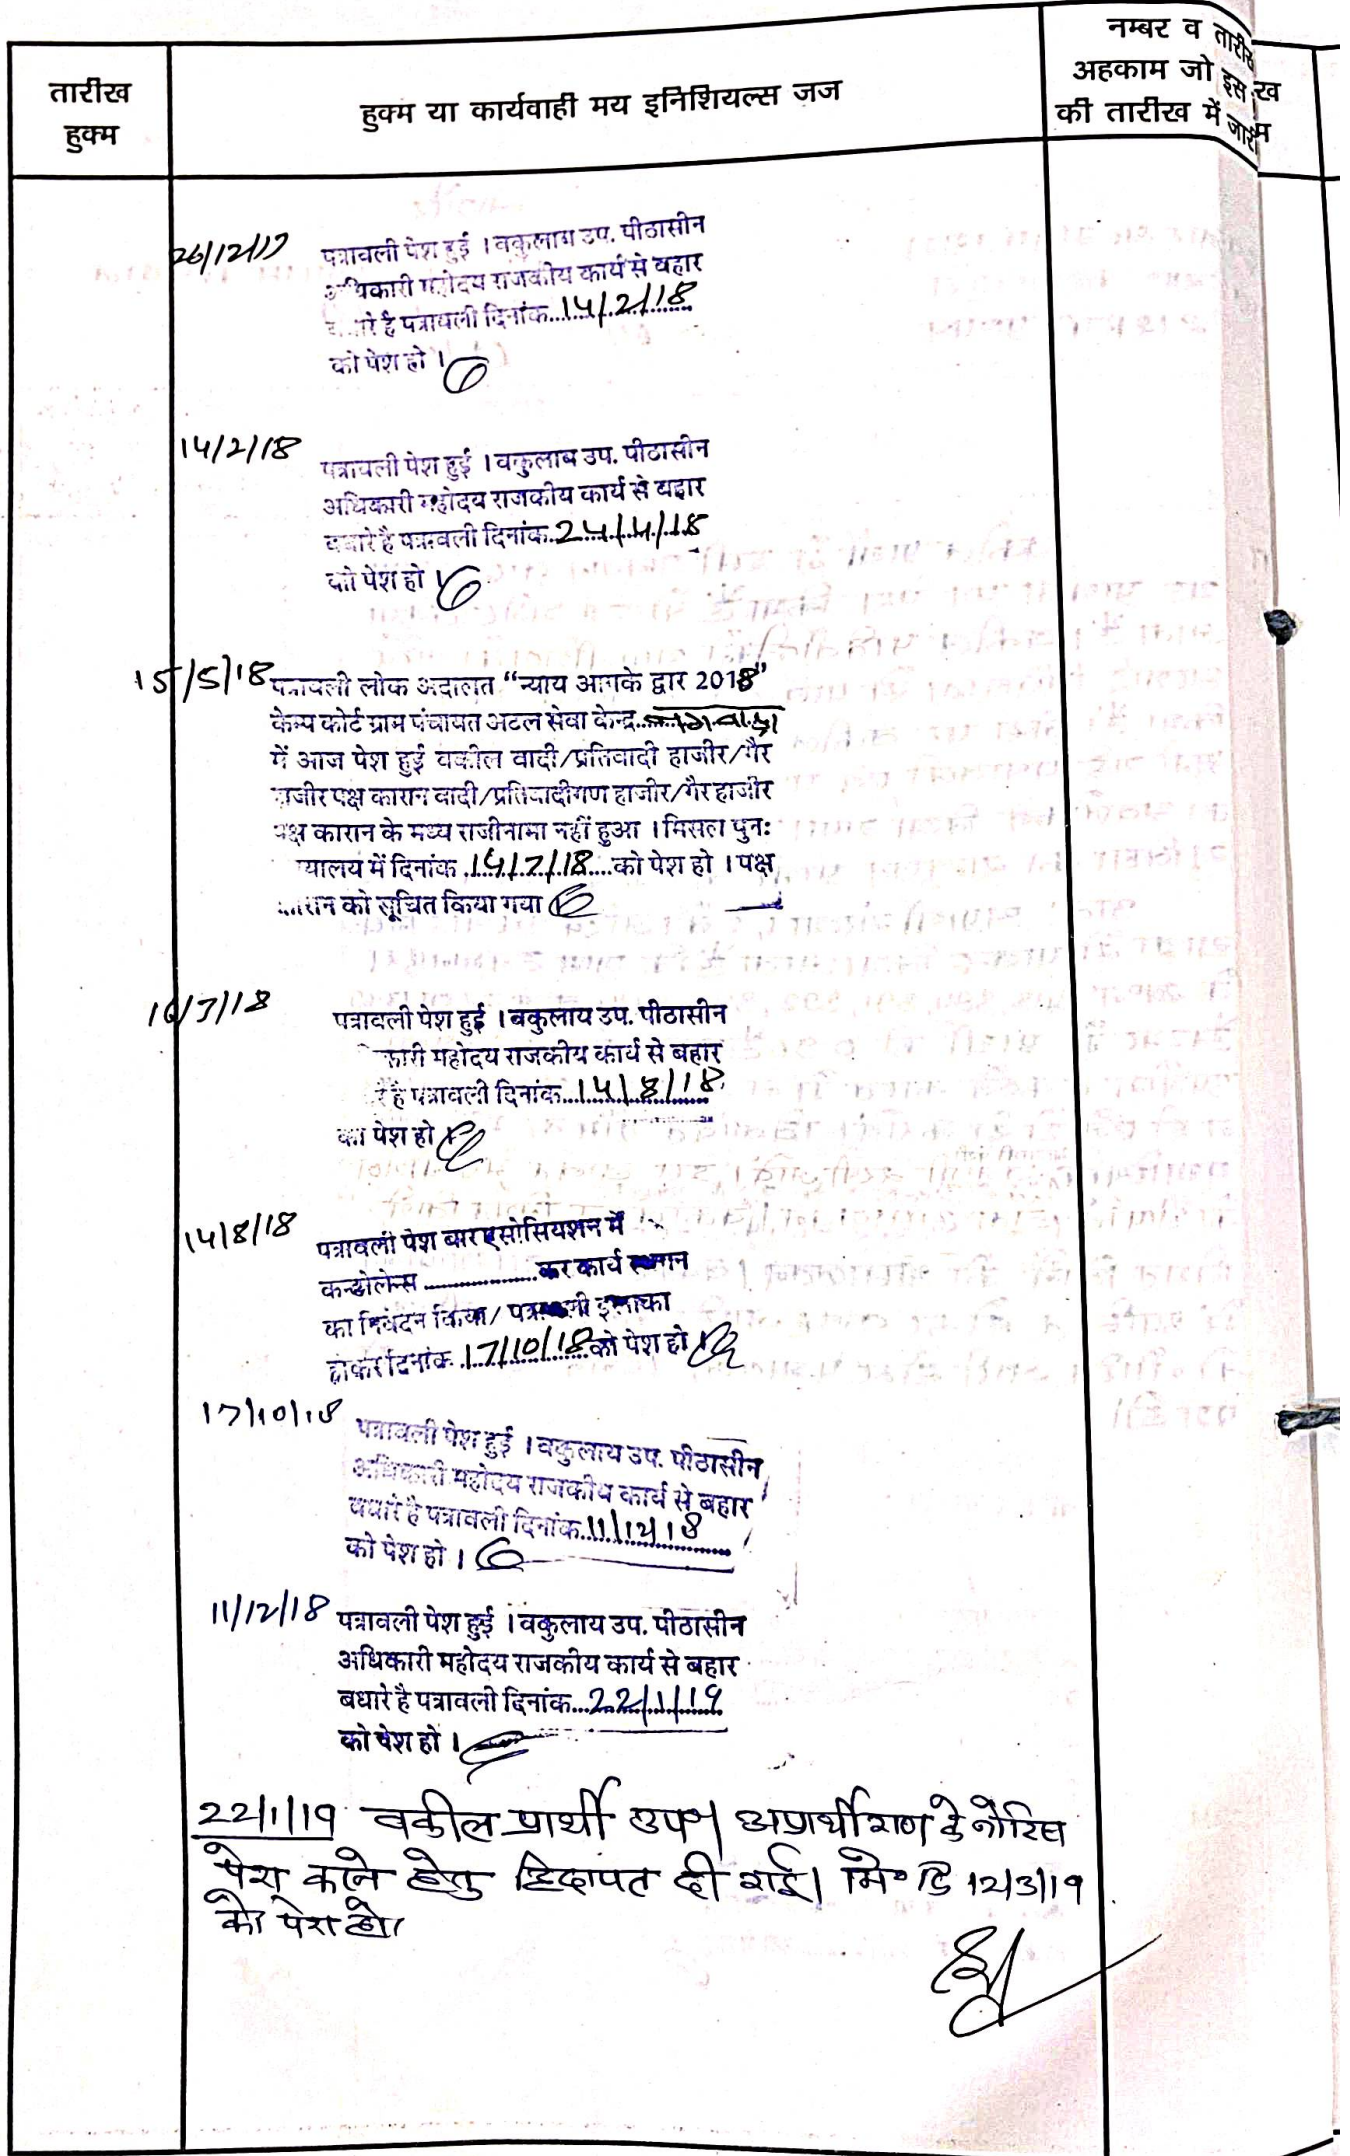 तारीख
हुक्म
हुक्म या कार्यवाही मय इनिशियल्स जज
नम्बर व तारीख
अहकाम जो इस
की तारीख में जारी
26/12/17
पत्रावली पेश हुई । वकुलाय उप. पीठासीन
अधिकारी महोदय राजकीय कार्य से बहार
है पत्रावली दिनांक 14/2/18
को पेश हो ।
14/2/18
पत्रावली पेश हुई । वकुलाय उप. पीठासीन
अधिकारी महोदय राजकीय कार्य से बहार
बधारे है पत्रावली दिनांक 24/4/18
को पेश हो
15/5/18
पत्रावली लोक अदालत “न्याय आपके द्वार 2018”
केम्प कोर्ट ग्राम पंचायत अटल सेवा केन्द्र
में आज पेश हुई वकील वादी/प्रतिवादी हाजीर/गैर
हाजीर पक्ष कारान वादी/प्रतिवादीगण हाजीर/गैर हाजीर
पक्ष कारान के मध्य राजीनामा नहीं हुआ । मिसल पुनः
यालय में दिनांक को पेश हो । पक्ष
कारान को सूचित किया गया
16/7/18
पत्रावली पेश हुई । वकुलाय उप. पीठासीन
कारी महोदय राजकीय कार्य से बहार
रे है पत्रावली दिनांक 14/8/18
को पेश हो
14/8/18
पत्रावली पेश बार एसोसियशन में
कन्डोलेन्स कर कार्य स्थगन
का निवेदन किया/ इलाका
होकर दिनांक 17/10/18 को पेश हो
17/10/18
पत्रावली पेश हुई । वकुलाय उप. पीठासीन
अधिकारी महोदय राजकीय कार्य से बहार
बधारे है पत्रावली दिनांक 11/12/18
को पेश हो ।
11/12/18
पत्रावली पेश हुई । वकुलाय उप. पीठासीन
अधिकारी महोदय राजकीय कार्य से बहार
बधारे है पत्रावली दिनांक 22/1/19
को पेश हो ।
22/1/19 वकील प्रार्थी उप। अप्रार्थीगण के नोटिस
पेश करने हेतु हिदायत दी गई। मि० दि 12/3/19
को पेश हो।